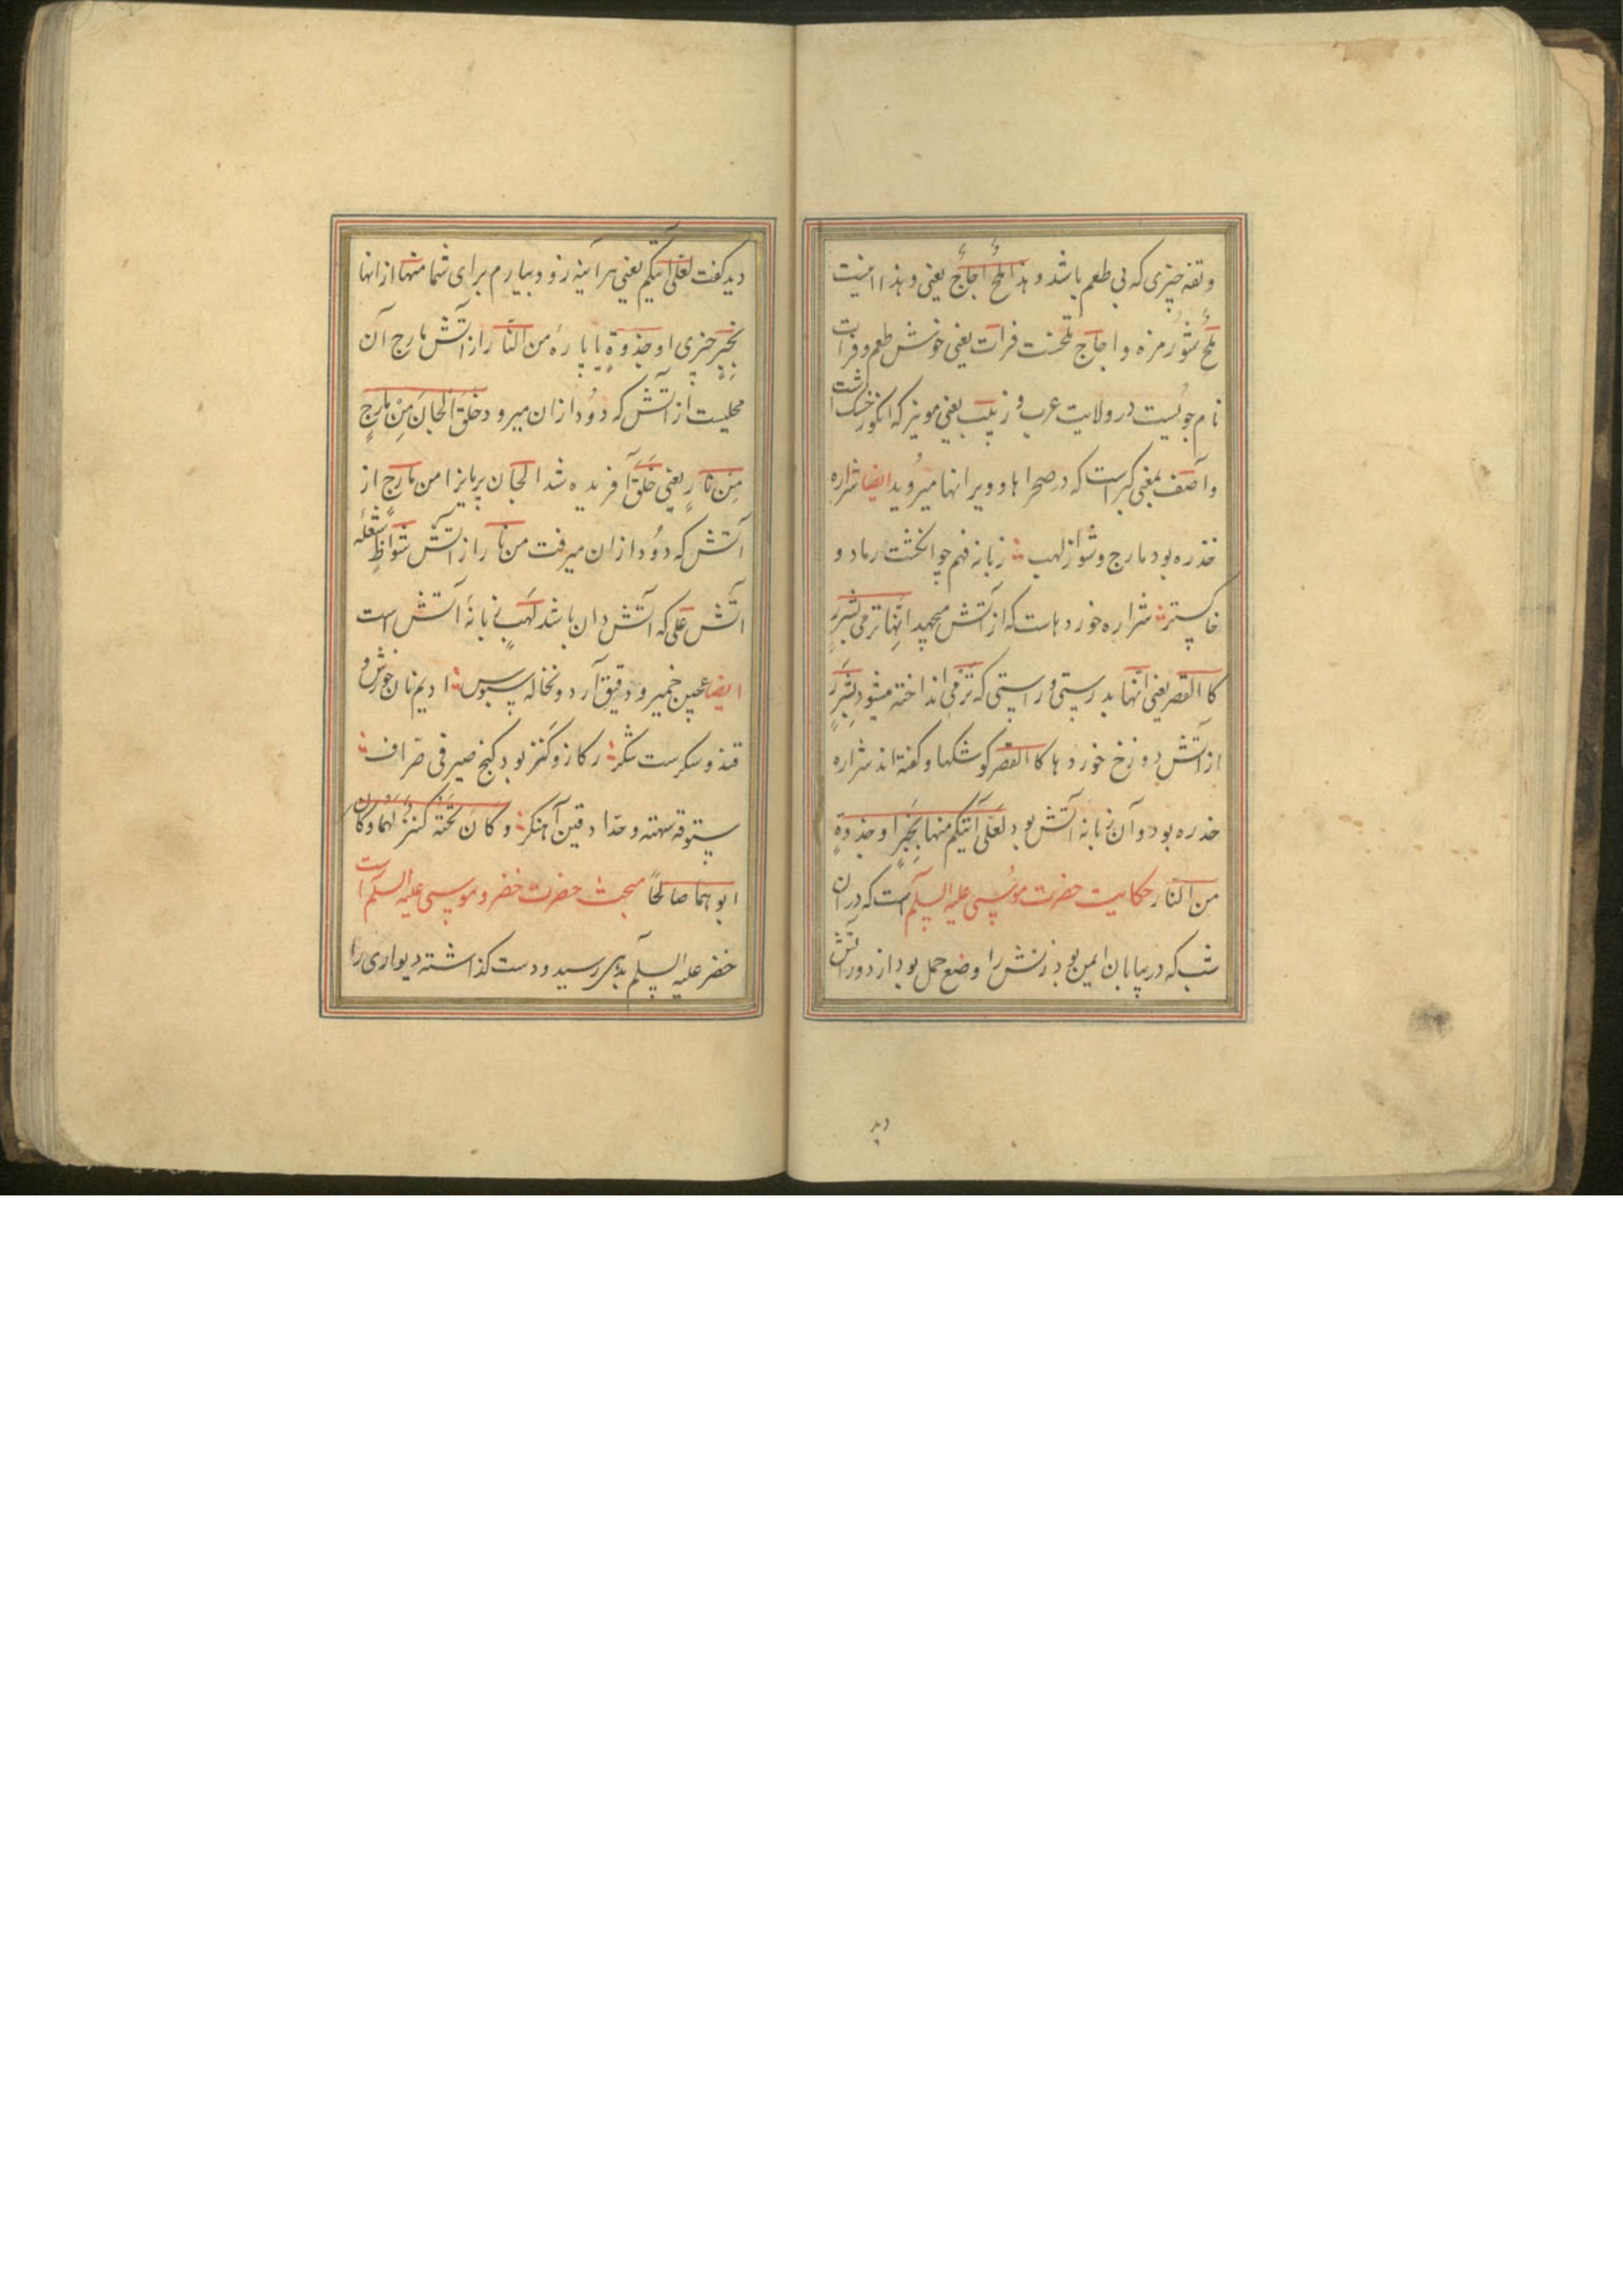 وتفه چیزی که بی طعم باشد و هذا ملحٌ اجاجٌ یعنی و هذا اینست
ملحٌ شور مزه و اجاج تلخست فرات یعنی خوش طعم و فرات
نام جویست در ولایت عرب و زبیب یعنی مویز که انکور خشک است
و آصف بمعنی کبر است که در صحراها و ویرانها میروید ایضا شراره
خدره بود مارج و شواظ لهب زبانه فحم چو انکشت رماد و
خاکستر شراره خوردهاست که از آتش میجهد انّها ترمی بشررٍ
کا القصر یعنی انّها بدرستی و راستی که ترمی انداخته میشود بشررٍ
از آتش دوزخ خوردها کا القصر کوشکها و کفته اند شراره
خدره بود و آن زبانه آتش بود لعلّی آتیکم منها بخبرٍ او جذوةٍ
من النّار حکایت حضرت موسی علیه السلم است که در ان
شب که در بیابان ایمن بود زنش را وضع حمل بود از دور آتش
دید
دید کفت لعلّی آتیکم یعنی هر آینه زود بیارم برای شما منها از انها
بخبرٍ چیزی او جذوةٍ یا پارهٔ من النّار از آتش مارج آن
محلیست از آتش که دود از ان میرود خلق الجانّ من مارجٍ
من نارٍ یعنی خلق آفریده شد الجان پریانرا من مارجٍ از
آتش که دود از ان میرفت من نار از آتش شواظٍ شعلهٔ
آتش علی که آتش دان باشد لهبٍ زبانهٔ آتش است
ایضا عجین خمیر و دقیق آرد و نخاله سبوس ادیم نان خورش و
قند و سکرست شکر رکاز و کنز بود کنج صیرفی صرّاف
ستوقه سهته و حدّاد قین آهنکر و کان تحته کنزٌ لهما و کان
ابوهما صالحاً مبحث حضرت خضر و موسی علیه السلم است
خضر علیه السلم بدهی رسید و دست کذاشته دیواری را